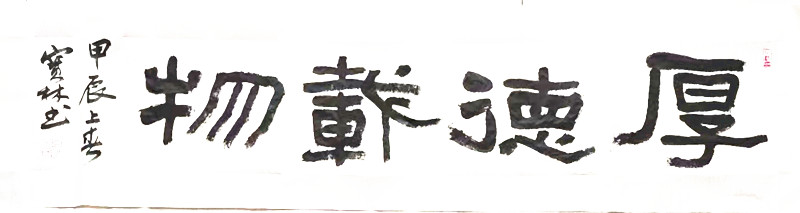 厚德載物
甲辰上春
寶林书